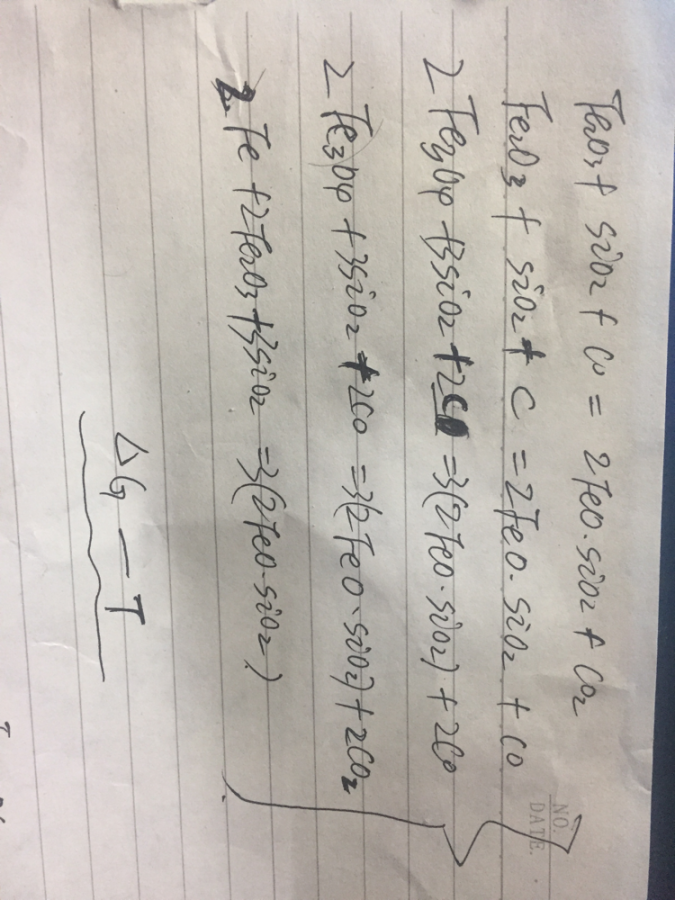 Fe2O3 + SiO2 + CO = 2FeO·SiO2 + CO2
Fe2O3 + SiO2 + C = 2FeO·SiO2 + CO
2 Fe3O4 + 3SiO2 + 2C = 3(2FeO·SiO2) + 2CO
2 Fe3O4 + 3SiO2 + 2CO = 3(2FeO·SiO2) + 2CO2
2 Fe + 2Fe2O3 + 3SiO2 = 3(2FeO·SiO2)
ΔG — T
NO.
DATE.